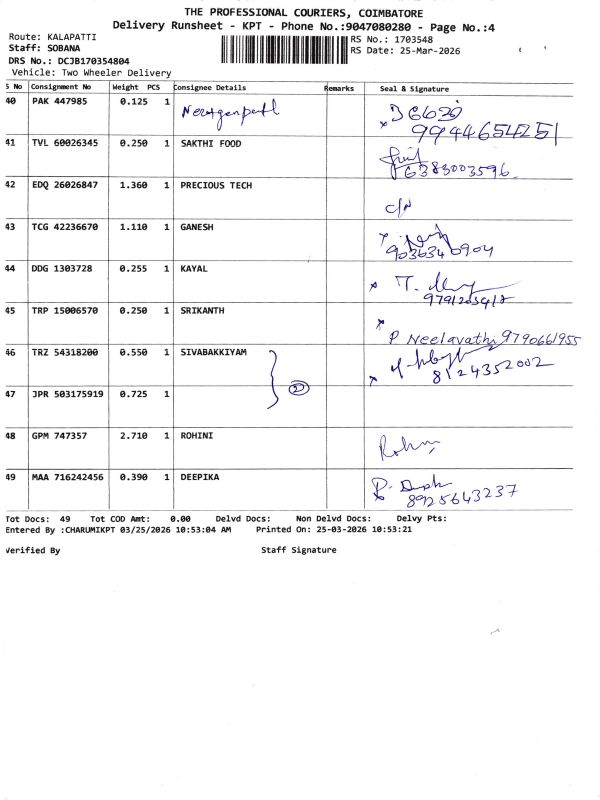 THE PROFESSIONAL COURIERS, COIMBATORE
Delivery Runsheet - KPT - Phone No.:9047080280 - Page No.:4
Route: KALAPATTI
RS No.: 1703548
Staff: SOBANA
RS Date: 25-Mar-2026
DRS No.: DCJB170354804
Vehicle: Two Wheeler Delivery
S No Consignment No Weight PCS Consignee Details Remarks Seal & Signature
40 PAK 447985 0.125 1
9944654251
41 TVL 60026345 0.250 1 SAKTHI FOOD
6383003596
42 EDQ 26026847 1.360 1 PRECIOUS TECH
c/n
43 TCG 42236670 1.110 1 GANESH
9036340904
44 DDG 1303728 0.255 1 KAYAL
45 TRP 15006570 0.250 1 SRIKANTH
P Neelavathi 9790661955
46 TRZ 54318200 0.550 1 SIVABAKKIYAM
8124352002
2
47 JPR 503175919 0.725 1
48 GPM 747357 2.710 1 ROHINI
Rohini
49 MAA 716242456 0.390 1 DEEPIKA
8925643237
Tot Docs: 49 Tot COD Amt: 0.00 Delvd Docs: Non Delvd Docs: Delvy Pts:
Entered By :CHARUMIKPT 03/25/2026 10:53:04 AM Printed On: 25-03-2026 10:53:21
Verified By Staff Signature